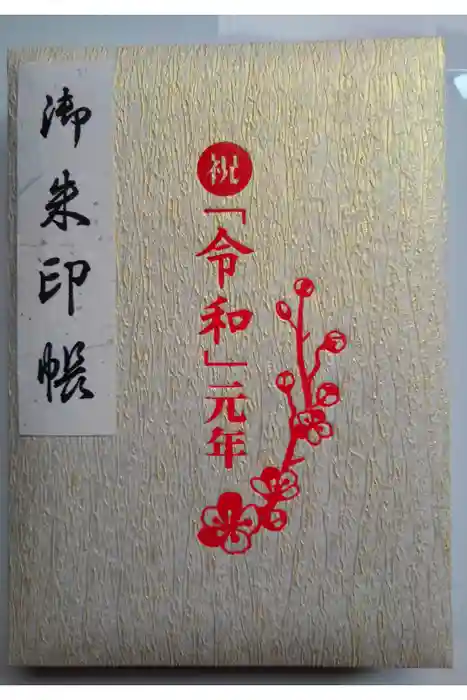 御朱印帳
祝
「令和」元年